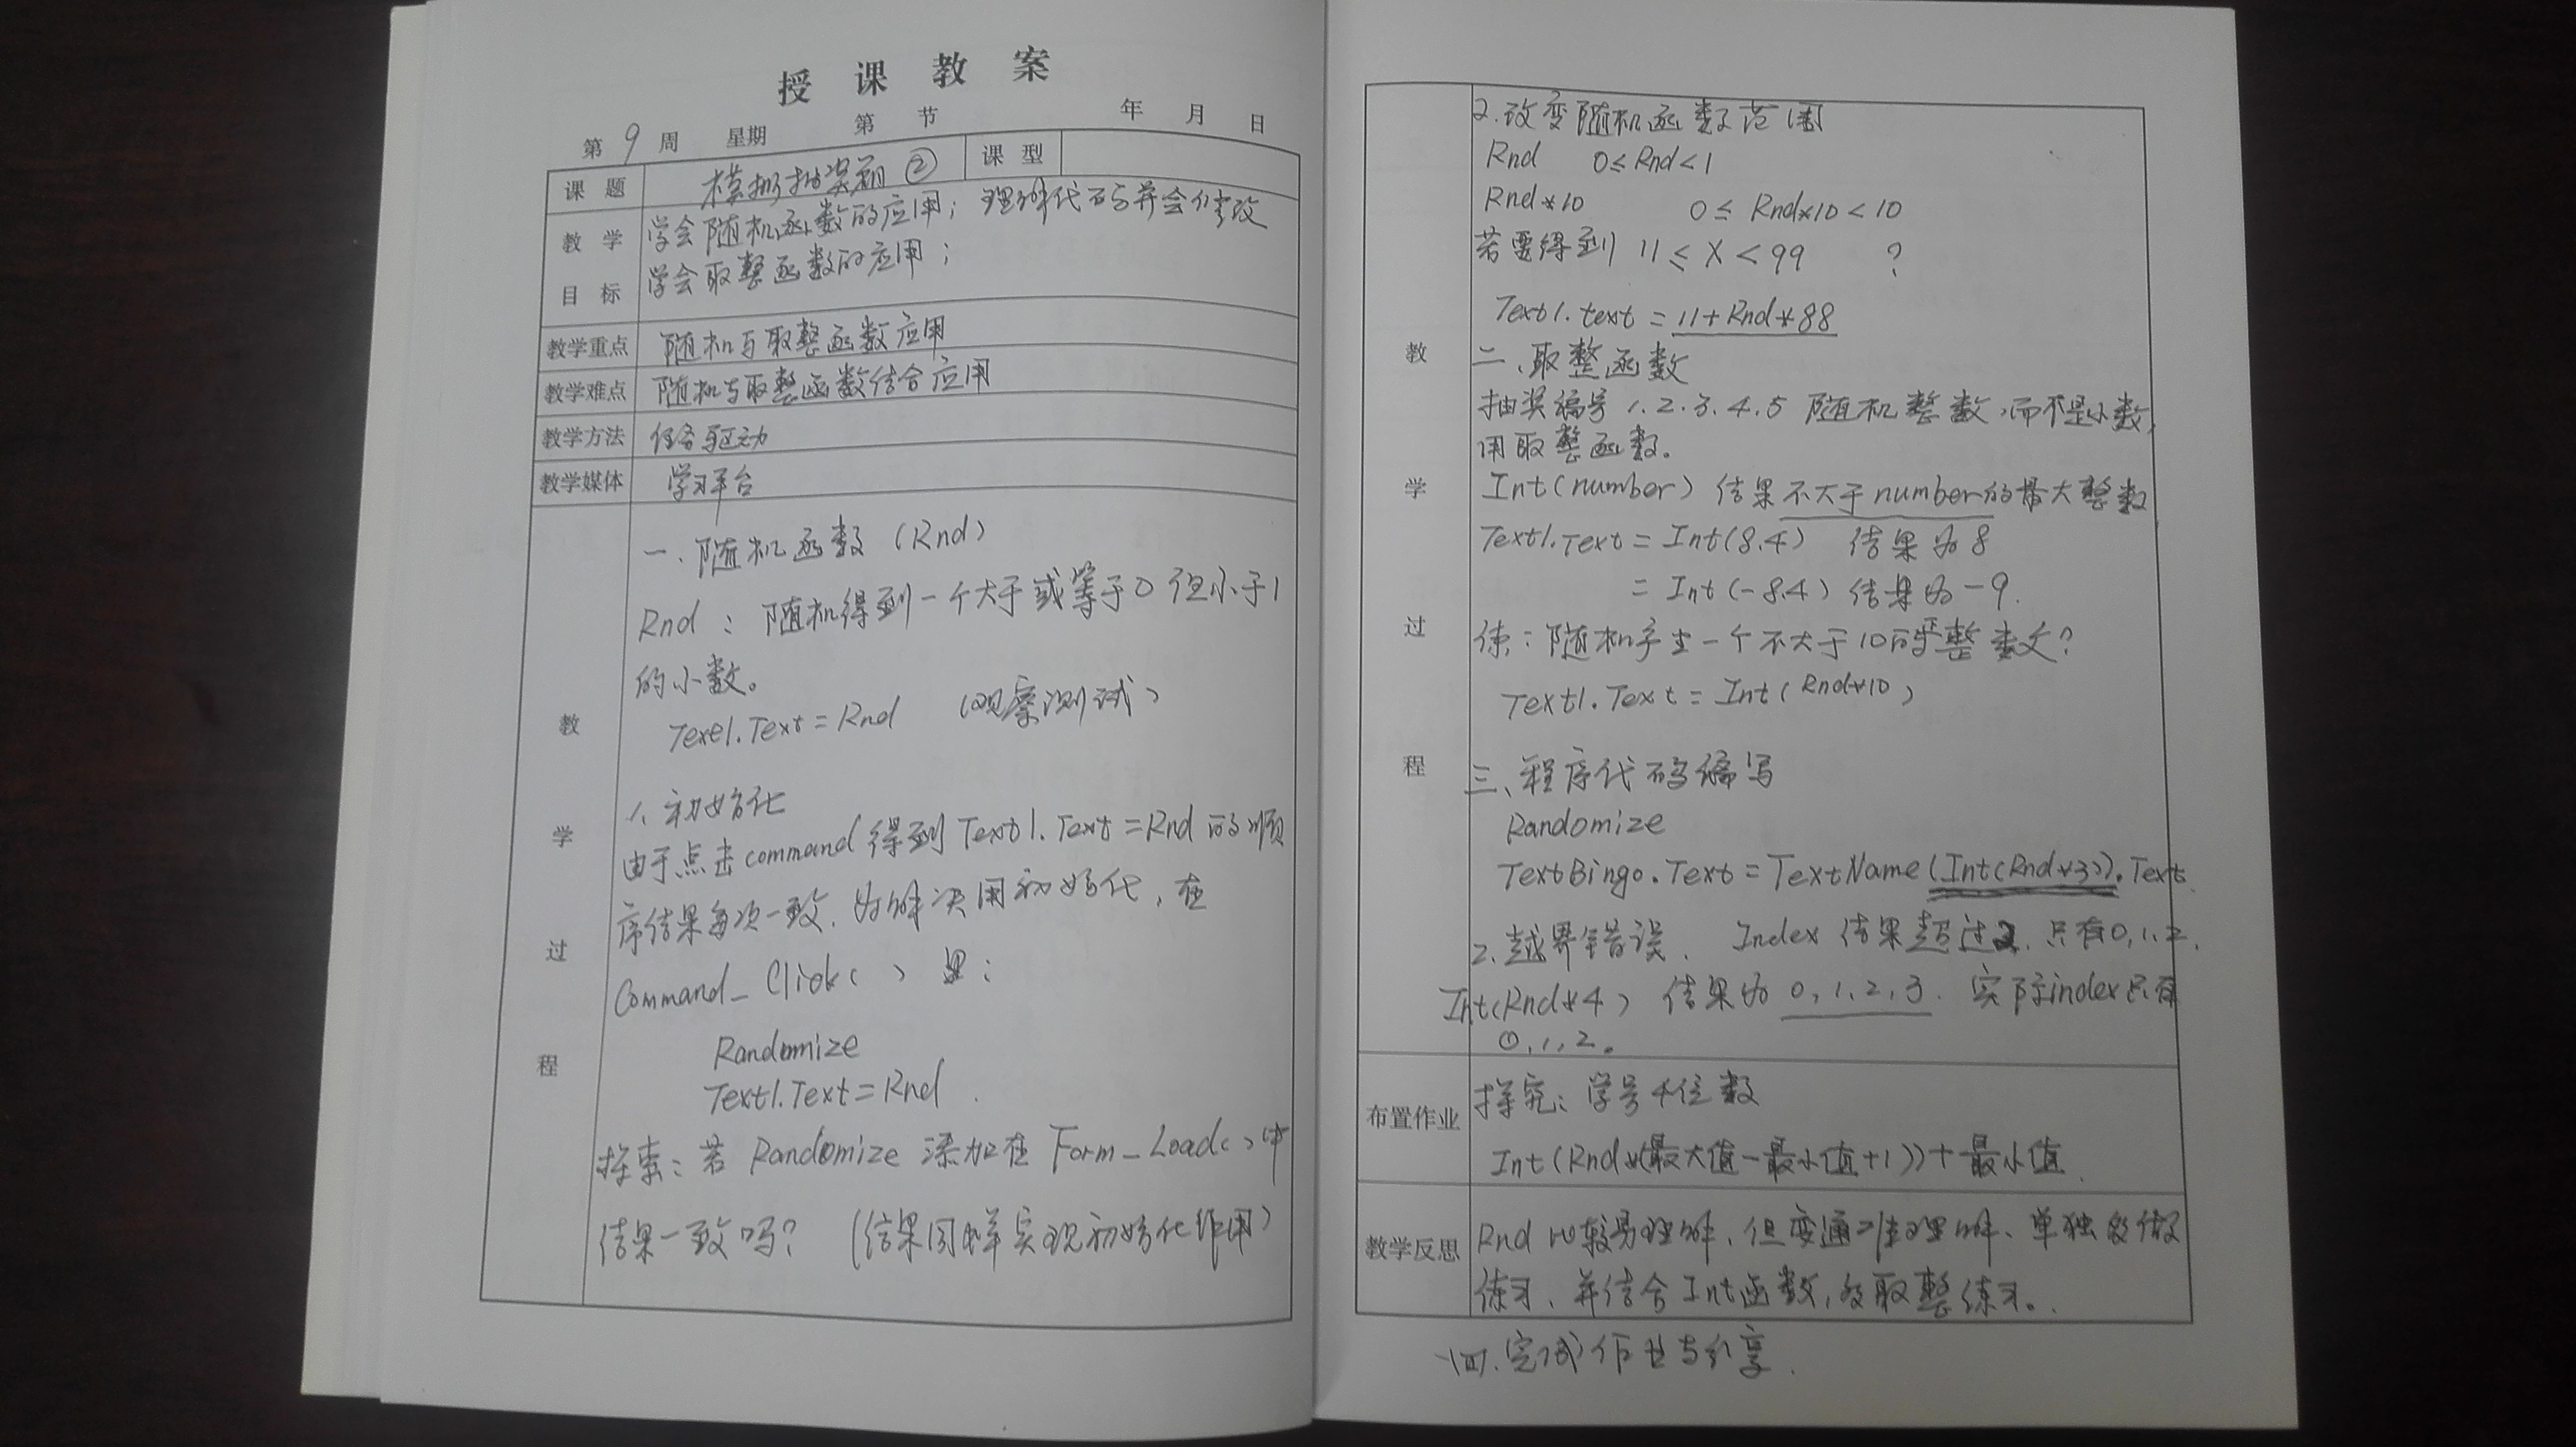 授课教案
第9周 星期 第 节 年 月 日
课题 模拟抽奖箱② 课型
教学目标 学会随机函数的应用；理解代码并会修改
学会取整函数的应用；
教学重点 随机与取整函数应用
教学难点 随机与取整函数结合应用
教学方法 任务驱动
教学媒体 学习平台
教学过程
一、随机函数（Rnd）
Rnd：随机得到一个大于或等于0但小于1
的小数。
Text1.Text=Rnd （观察测试）
1、初始化
由于点击command得到Text1.Text=Rnd的顺
序结果每次一致，为解决用初始化，在
Command_Click（）里：
Randomize
Text1.Text=Rnd.
探索：若Randomize添加在Form_Load（）中
结果一致吗？（结果同样实现初始化作用）
教学过程
2.改变随机函数范围
Rnd 0≤Rnd<1
Rnd*10 0≤Rnd*10<10
若要得到 11≤X<99 ?
Text1.text=11+Rnd*88
二、取整函数
抽奖编号1.2.3.4.5随机整数，而不是小数，
用取整函数。
Int（number）结果不大于number的最大整数
Text1.Text=Int(8.4) 结果为8
=Int(-8.4) 结果为-9.
练：随机产生一个不大于10的正整数？
Text1.Text=Int(Rnd*10)
三、程序代码编写
Randomize
TextBingo.Text=TextName(Int(Rnd*3)).Text.
2.越界错误. Index结果超过2.只有0,1,2.
Int(Rnd*4) 结果为0,1,2,3. 实际index只有
0,1,2。
布置作业 探究：学号4位数
Int(Rnd*(最大值-最小值+1))+最小值.
教学反思 Rnd比较易理解，但变通难理解、单独多做
练习，并结合Int函数，多取整练习。
四.完成作业与分享.